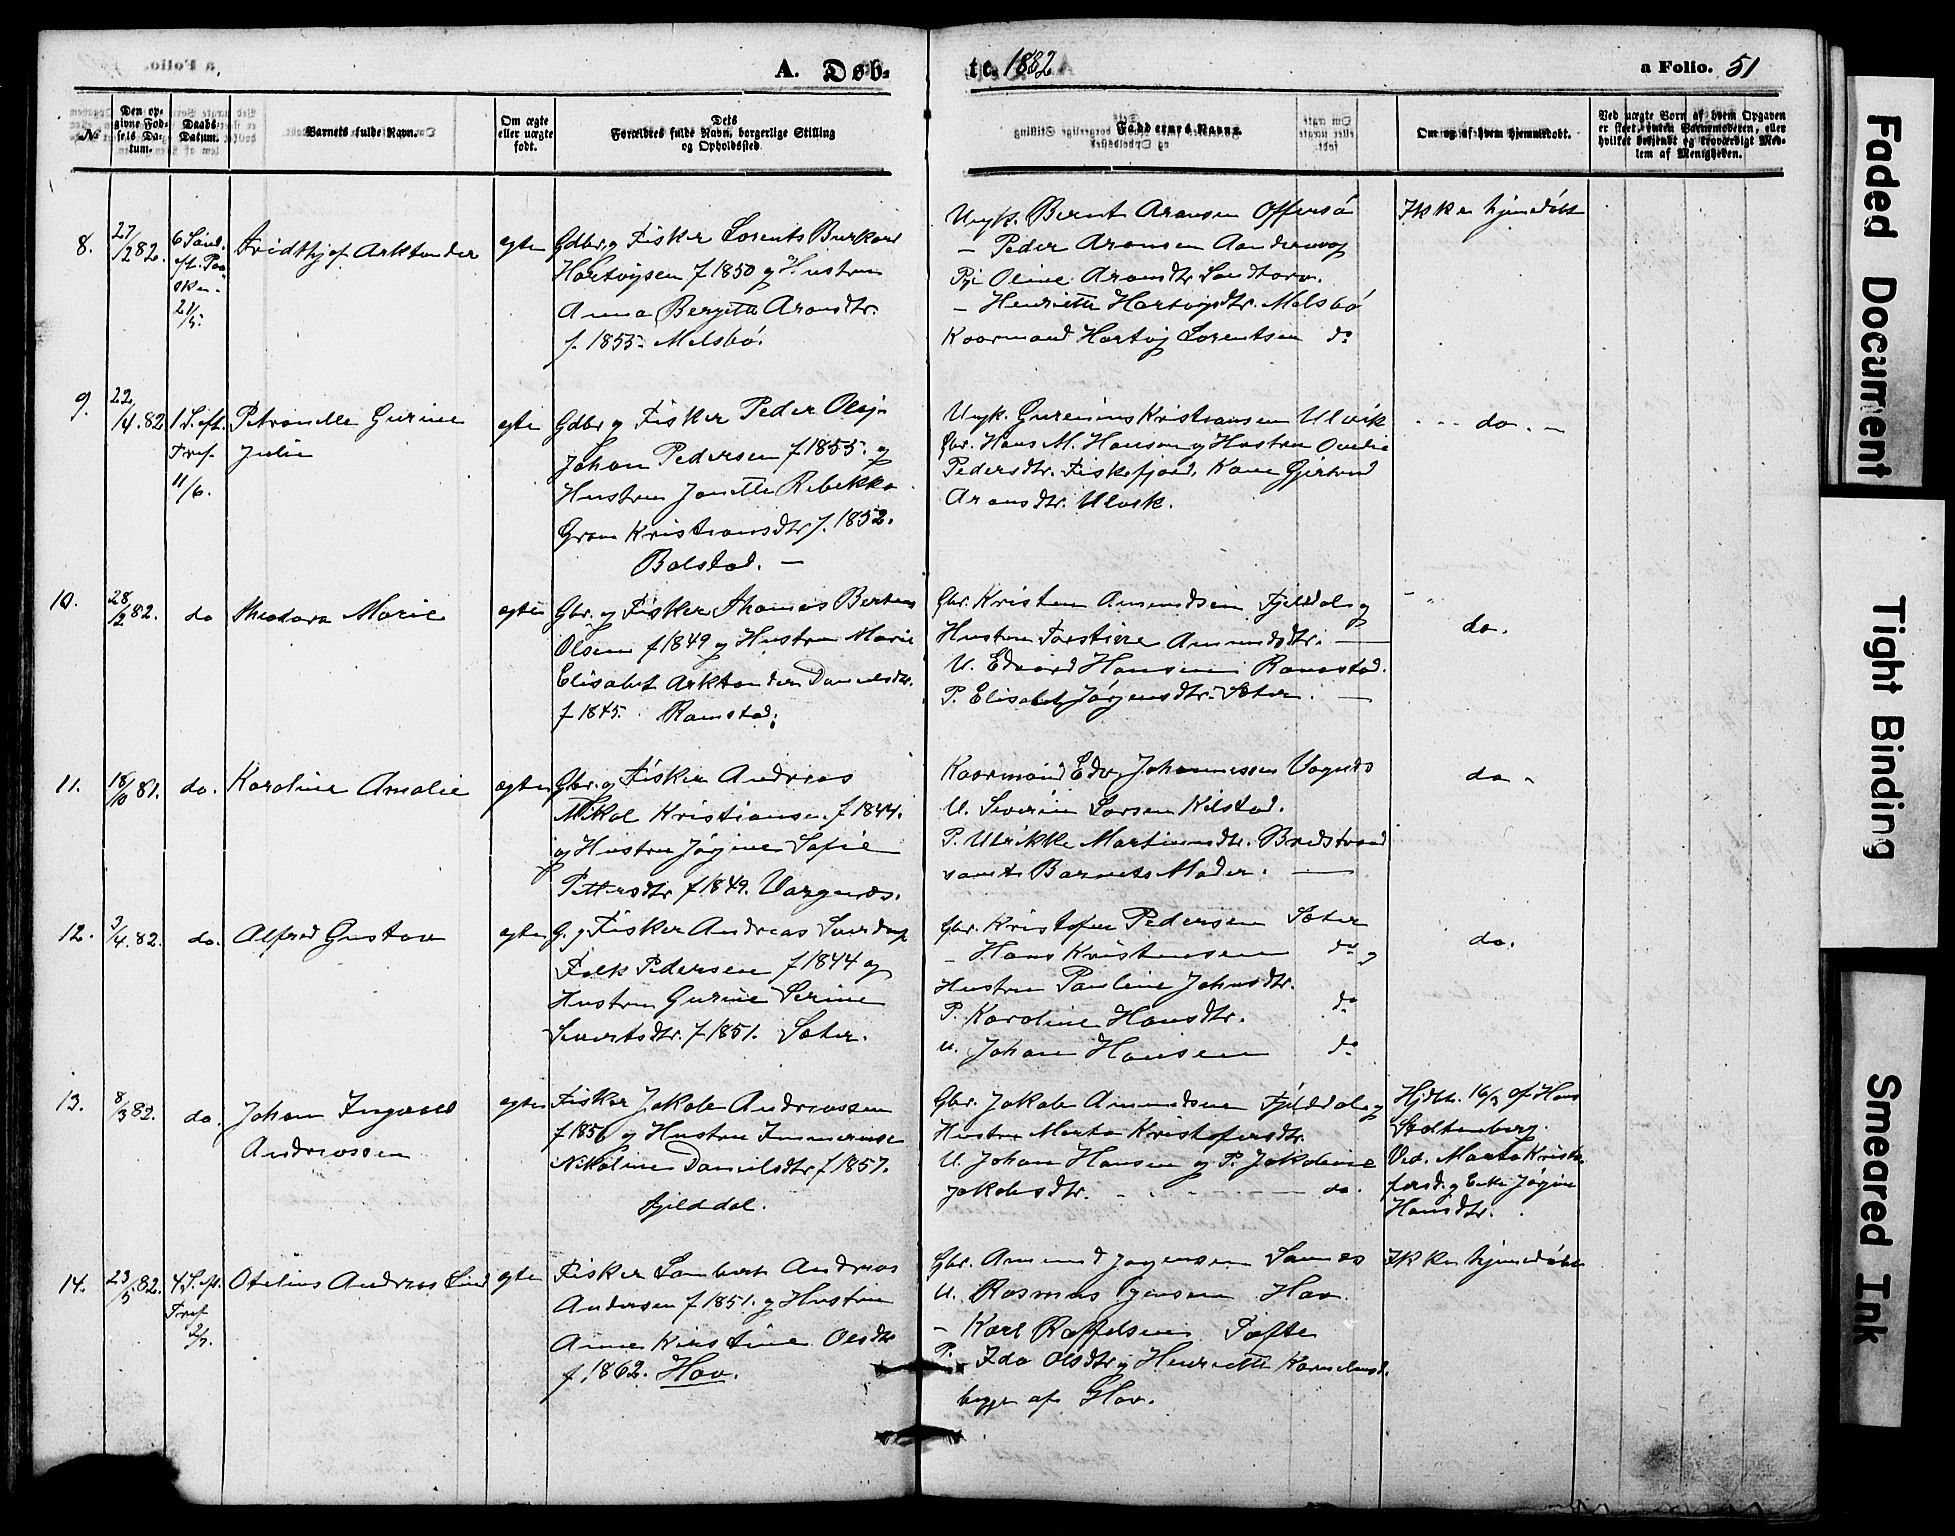 A. Døb-
te. 1882
a Folio. 51
№
Den op-
givne Fød-
sels Da-
tum.
Daabs-
Datum.
Barnets fulde Navn.
Om ægte
eller uægte
født.
Dets
Forældres fulde Navn, borgerlige Stilling
og Opholdssted.
Faddernes Navne.
Om og af hvem hjemmedøbt.
Ved uægte Børn af hvem Opgaven
er skeet, inden Barnemoderen, eller
hvilket bosiddende og troværdigt Med-
lem af Menigheden.
8.
27/2 82.
6 Sønd.
eft. Paa-
sken.
21/5.
Fridthjof Arktander
egte
Gdbr. og Fisker Lorents Burkard
Hartvigsen f 1850 og Hustru
Anna Bergitte Aronsdtr.
f. 1855. Melsbø.
Ungk. Bernt Aronsen Offersø
- Peder Aronsen
Pige Oline Aronsdtr. Sandtorv.
- Henriette Hartvigsdtr. Melsbø
Kaarmand Hartvig Lorentsen do
Ikke hjemdøbt
9.
22/4.82
1 S. eft.
Tref.
11/6.
Petronelle Gurine
Julie
egte
Gdbr. og Fisker Peder Olaj-
Johan Pedersen f 1855. og
Hustru Jonette Rebekka
Gram Kristiansdtr f. 1852.
Bolstad. -
Ungk. Gurenius Kristiansen Ulvik
Gbr. Hans M. Hansen og Hustru Ovedie
Pedersdtr. Fiskefjord, Kone Gjertrud
Aronsdtr. Ulvik.
do. -
10.
28/2 82.
do
Theodora Marie
egte
Gbr. og Fisker Thomas Berteus
Olsen f 1849 og Hustru Marie
Elisabet Arktander Danielsdtr.
f 1845. Ramstad.
Gbr. Kristen Amundsen Fjelddal og
Hustru Torstine Amundsdtr. -
U. Edvard Hansen Ramstad.
P. Elisabet Jørgensdtr. Sæter. -
do.
11.
18/10 81.
do.
Karoline Amalie
egte
Gbr. og Fisker Andreas
Mikal Kristiansen f 1844.
og Hustru Jørgine Sofie
Pettersdtr f 1849. Vargenes.
Kaarmand Edv. Johannessen Vagenes
U. Severin Larsen Kilstad.
P. Ulrikke Martinusdtr. Bredstrand
samt Barnets Moder. -
do -
12.
3/4.82.
do.
Alfred Gustav
egte
G. og Fisker Andreas Sverdrup
Falk Pedersen f 1844 og
Hustru Gurine Serine
Sivertsdtr. f 1851. Sæter.
Gbr. Kristofer Pedersen Sæter
- Hans Kristensen do og
Hustru Pauline Johnsdtr.
P. Karoline Hansdtr. do
U. Johan Hansen do
do.
13.
8/3 82.
do.
Johan Ingvald
Andreassen
egte
Fisker Jakob Andreassen
f 1856 og Hustru
Nikoline Danielsdtr f 1857.
Fjelddal.
Gbr. Jakob Amundsen Fjelddal og
Hustru Marta Kristofersdtr
U. Johan Hansen og P. Jakobine
Jakobsdtr. - do.
Hjdbt. 16/3 af Hans
Stoltenberg.
Vid. Marta Kristo-
fersd. og Enke Jørgine
Hansdtr.
14.
23/5.82.
4 S. eft.
Tref
2/7.
Otelius Andreas Lind
egte
Fisker Lambert Andreas
Andersen f 1851. og Hustru
Anne Kirstine Olsdtr
f. 1862. Hov.
Gbr. Amund Jørgensen Sannes
U. Rasmus Jensen Hov.
- Karl Raffelsen Tofte
P. Ida Olsdtr og Henriette
begge af Hov.
Ikke hjemdøbt
Faded Document
Tight Binding
Smeared Ink